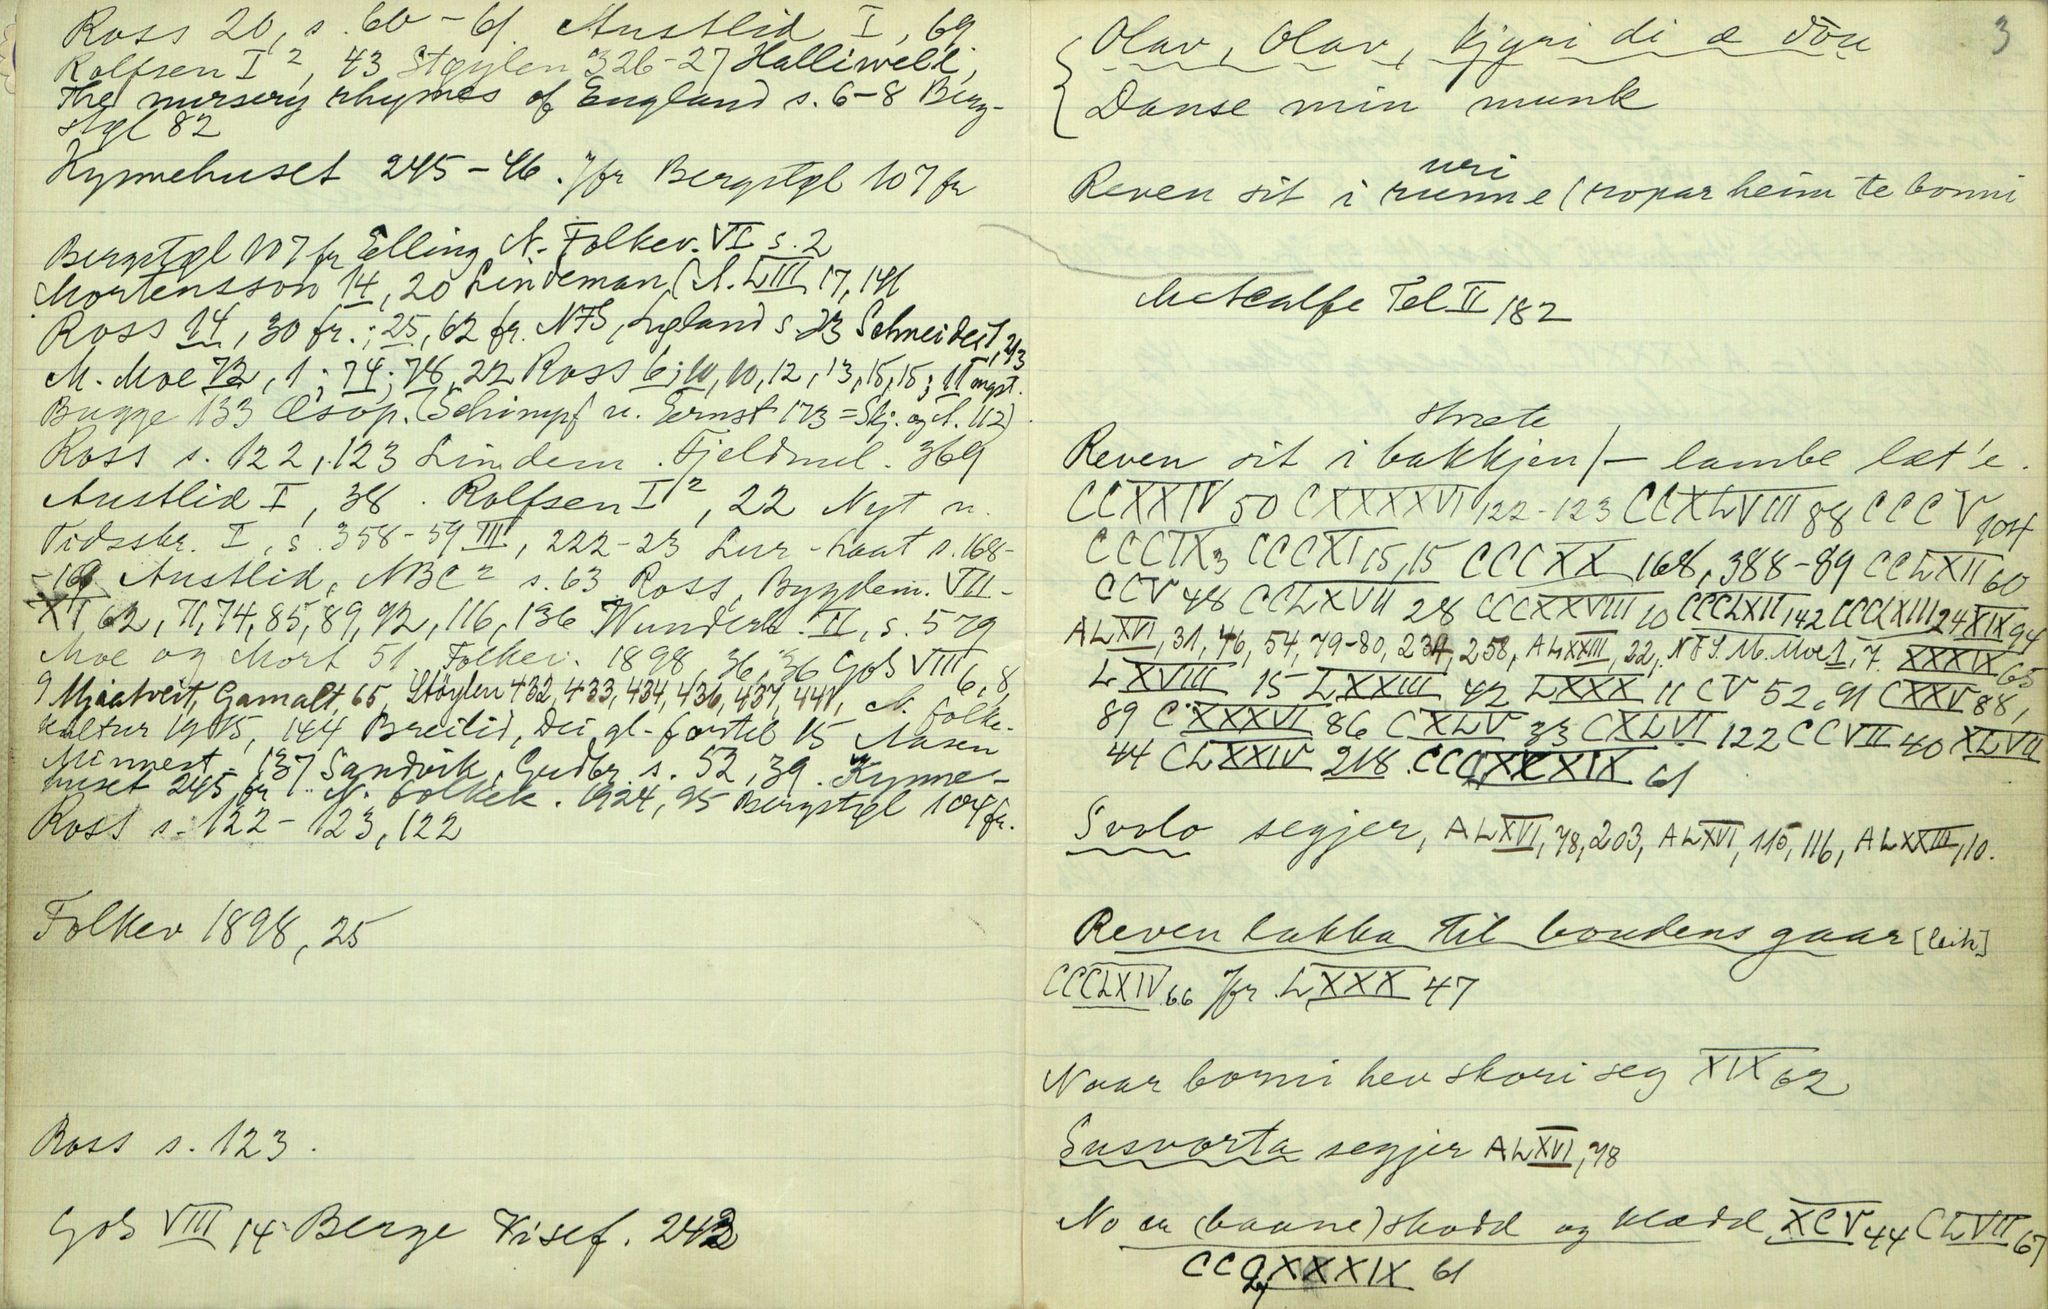 Ross 20, s. 60-61 Austlid I, 69
Rolfsen I², 43 Støylen 326-27 Halliwell,
The nursery rhymes of England s. 6-8 Berg-
støl 82
Kynnehuset 245-46. Jfr Bergstøl 107 fr
Bergstøl 107 fr Elling N. Folkev. VI s. 2
Mortensson 14, 20 Lindeman LIII 17, 141
Ross 14, 30 fr.; 25, 62 fr. NFS, Lyland s. 23 Schneider 1, 43
M. Moe 72, 1; 74; 78, 22 Ross 6; 10, 10, 12, 13, 15, 15; 11
Bugge 133 Æsop. (Schimpf u. Ernst 173 = Skj. og A. 112)
Ross s. 122, 123 Lindem. Fjeldmel. 369
Austlid I, 38. Rolfsen I², 22 Nyt n.
Tidsskr. I, s. 358-59 III, 222-23 Lur-laat s. 168-
-169 Austlid, NBC² s. 63 Ross, Bygdem. VII-
XI 62, 71, 74, 85, 89, 92, 116, 136 Wunderh. II, s. 579
Moe og Mort 51 Folkev. 1898, 36, 36 Gob VIII 6, 8,
9 Mjaatveit, Gamalt, 65, Støylen 432, 433, 434, 436, 437, 441, N. folke-
kultur 1915, 144 Breilid, Dei gl. fortel 15 Aasen
Minnest. 137 Sandvik, Gudbr. s. 52, 39. Kynne-
huset 245 fr N. folkek. 1924, 95 Bergstøl 104 fr.
Ross s. 122-123, 122
Folkev 1898, 25
Ross s. 123.
Gob VIII 14 Berge Visef. 243
3
Olav, Olav, kjyri di æ dou
Danse min munk
uri
Reven sit i runne (ropar heim te bonni
Metcalfe Tel II 182
strete
Reven sit i bakkjen/- lambe læt'e.
CCXXIV 50 CXXXXVI 122-123 CCXLVIII 88 CCCV 104
CCCIX 3 CCCXI 15, 15 CCCXX 168, 388-89 CCLXII 60
CCV 48 CCLXVII 28 CCCXXVIII 10 CCCLXII 142 CCCLXIII 24 XIX 94
AL XVI, 31, 46, 54, 79-80, 234, 258, AL XXIII, 22, NFS. M. Moe 1, 7. XXXIX 65
LXVIII 15 LXXIII 42 LXXX 11 CV 52, 91 CXXV 88,
89 CXXXVI 86 CXLV 33 CXLVI 122 CCVII 40 XLVII
44 CLXXIV 218 61
Svolo segjer, AL XVI, 78, 203, AL XVI, 115, 116, AL XXIII, 10.
Reven lakka til bondens gaar [leik]
CCCLXIV 66 Jfr. LXXX 47
Naar bonni hev skori seg XIX 62
Susvorta segjer AL XVI, 78
No æ (baane) skodd og klædd XCV 44 CLVII 67
61